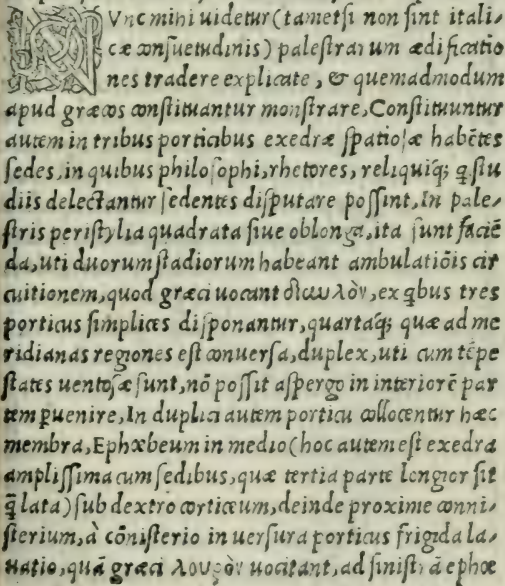 NVnc mihi uidetur (tametsi non sint itali/
cæ consuetudinis) palestrarum ædificatio
nes tradere explicate, & quemadmodum
apud græcos constituantur monstrare, Constituuntur
autem in tribus porticibus exedræ spatiosæ habẽtes
sedes, in quibus philosophi, rhetores, reliquiq; q stu
diis delectantur sedentes disputare possint, In pale/
stris peristylia quadrata siue oblonga, ita sunt faciẽ
da, uti duorum stadiorum habeant ambulatiõis cir
cuitionem, quod græci uocant δίαυλὸν, ex qbus tres
porticus simplices disponantur, quartaq; quæ ad me
ridianas regiones est conuersa, duplex, uti cum tẽpe
states uentosæ sunt, nõ possit aspergo in interiorẽ par
tem puenire, In duplici autem porticu collocentur hæc
membra, Ephœbeum in medio (hoc autem est exedra
amplissima cum sedibus, quæ tertia parte longior sit
q̃ lata) sub dextro corticeum, deinde proxime conni/
sterium, à cõnisterio in uersura porticus frigida la/
uatio, quã græci λουρὸν uocitant, ad sinistrã ephœ